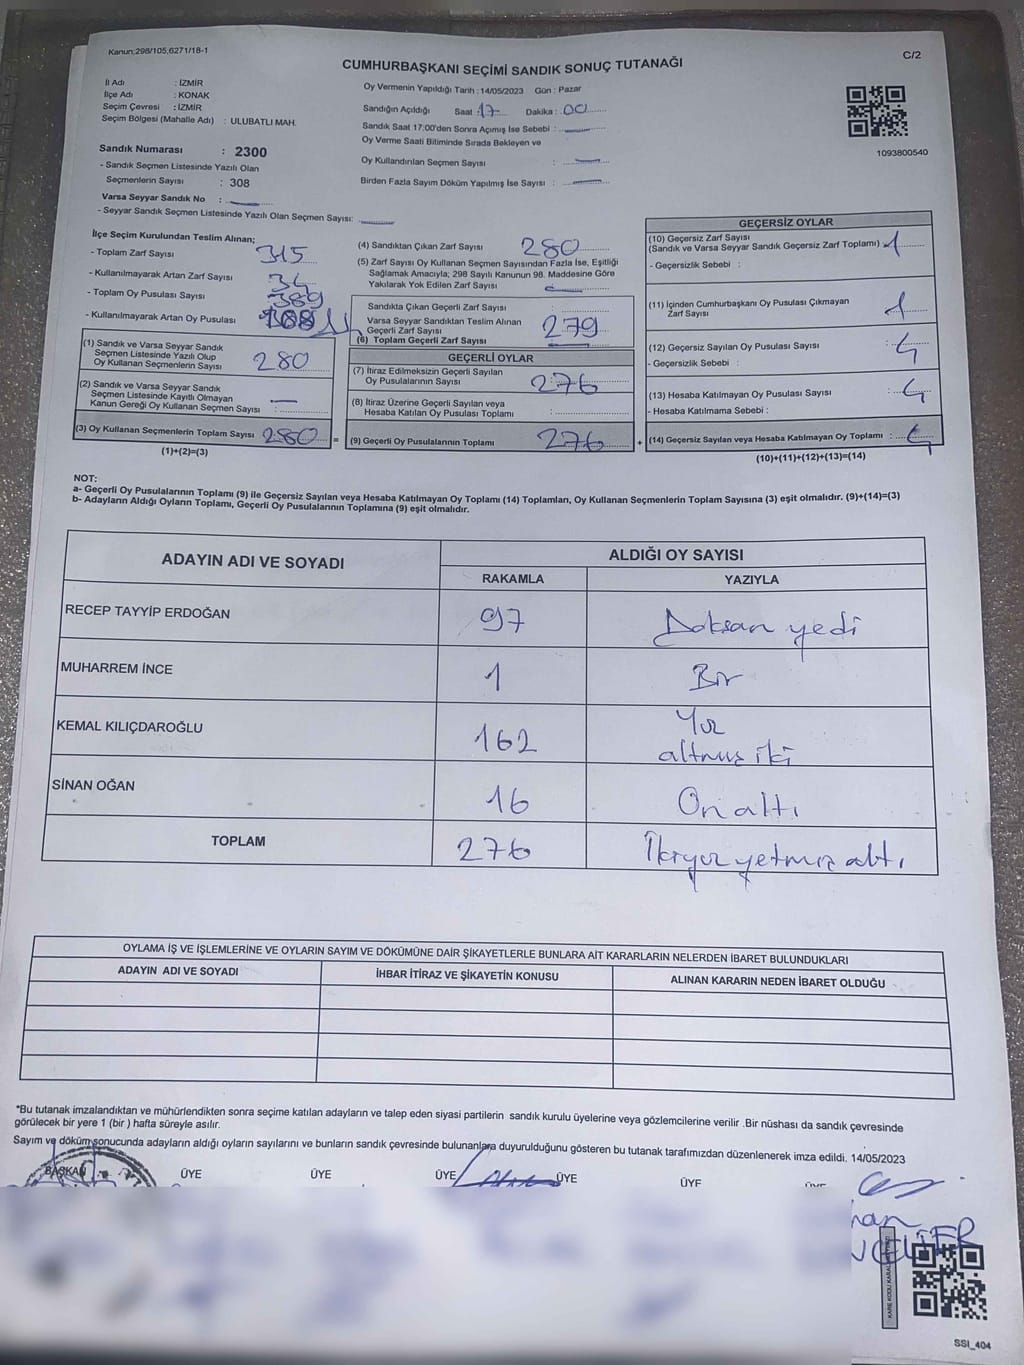 Kanun;298/105,6271/18-1
C/2
CUMHURBAŞKANI SEÇİMİ SANDIK SONUÇ TUTANAĞI
İl Adı : İZMİR
İlçe Adı : KONAK
Seçim Çevresi : İZMİR
Seçim Bölgesi (Mahalle Adı) : ULUBATLI MAH.
Sandık Numarası : 2300
- Sandık Seçmen Listesinde Yazılı Olan
Seçmenlerin Sayısı : 308
Varsa Seyyar Sandık No :
- Seyyar Sandık Seçmen Listesinde Yazılı Olan Seçmen Sayısı:
Oy Vermenin Yapıldığı Tarih : 14/05/2023 Gün : Pazar
Sandığın Açıldığı Saat : 17 Dakika : 00
Sandık Saat 17:00'den Sonra Açımış İse Sebebi :
Oy Verme Saati Bitiminde Sırada Bekleyen ve
Oy Kullandırılan Seçmen Sayısı :
Birden Fazla Sayım Döküm Yapılmış İse Sayısı :
1093800540
İlçe Seçim Kurulundan Teslim Alınan;
- Toplam Zarf Sayısı 315
- Kullanılmayarak Artan Zarf Sayısı
- Toplam Oy Pusulası Sayısı 389
- Kullanılmayarak Artan Oy Pusulası
(1) Sandık ve Varsa Seyyar Sandık
Seçmen Listesinde Yazılı Olup
Oy Kullanan Seçmenlerin Sayısı 280
(2) Sandık ve Varsa Seyyar Sandık
Seçmen Listesinde Kayıtlı Olmayan
Kanun Gereği Oy Kullanan Seçmen Sayısı :
(3) Oy Kullanan Seçmenlerin Toplam Sayısı 280 =
(1)+(2)=(3)
(4) Sandıktan Çıkan Zarf Sayısı 280
(5) Zarf Sayısı Oy Kullanan Seçmen Sayısından Fazla İse, Eşitliği
Sağlamak Amacıyla; 298 Sayılı Kanunun 98. Maddesine Göre
Yakılarak Yok Edilen Zarf Sayısı
Sandıkta Çıkan Geçerli Zarf Sayısı
Varsa Seyyar Sandıktan Teslim Alınan
Geçerli Zarf Sayısı 279
(6) Toplam Geçerli Zarf Sayısı
GEÇERLİ OYLAR
(7) İtiraz Edilmeksizin Geçerli Sayılan
Oy Pusulalarının Sayısı : 276
(8) İtiraz Üzerine Geçerli Sayılan veya
Hesaba Katılan Oy Pusulası Toplamı :
(9) Geçerli Oy Pusulalarının Toplamı 276 +
GEÇERSİZ OYLAR
(10) Geçersiz Zarf Sayısı
(Sandık ve Varsa Seyyar Sandık Geçersiz Zarf Toplamı) 1
- Geçersizlik Sebebi :
(11) İçinden Cumhurbaşkanı Oy Pusulası Çıkmayan
Zarf Sayısı 1
(12) Geçersiz Sayılan Oy Pusulası Sayısı : 4
- Geçersizlik Sebebi :
(13) Hesaba Katılmayan Oy Pusulası Sayısı : 4
- Hesaba Katılmama Sebebi :
(14) Geçersiz Sayılan veya Hesaba Katılmayan Oy Toplamı : 4
(10)+(11)+(12)+(13)=(14)
NOT:
a- Geçerli Oy Pusulalarının Toplamı (9) ile Geçersiz Sayılan veya Hesaba Katılmayan Oy Toplamı (14) Toplamları, Oy Kullanan Seçmenlerin Toplam Sayısına (3) eşit olmalıdır. (9)+(14)=(3)
b- Adayların Aldığı Oyların Toplamı, Geçerli Oy Pusulalarının Toplamına (9) eşit olmalıdır.
ADAYIN ADI VE SOYADI ALDIĞI OY SAYISI
RAKAMLA YAZIYLA
RECEP TAYYİP ERDOĞAN 97 Doksan yedi
MUHARREM İNCE 1 Bir
KEMAL KILIÇDAROĞLU 162 Yüz
altmış iki
SİNAN OĞAN 16 On altı
TOPLAM 276 İkiyüz yetmiş altı
OYLAMA İŞ VE İŞLEMLERİNE VE OYLARIN SAYIM VE DÖKÜMÜNE DAİR ŞİKAYETLERLE BUNLARA AİT KARARLARIN NELERDEN İBARET BULUNDUKLARI
ADAYIN ADI VE SOYADI İHBAR İTİRAZ VE ŞİKAYETİN KONUSU ALINAN KARARIN NEDEN İBARET OLDUĞU
*Bu tutanak imzalandıktan ve mühürlendikten sonra seçime katılan adayların ve talep eden siyasi partilerin sandık kurulu üyelerine veya gözlemcilerine verilir .Bir nüshası da sandık çevresinde
görülecek bir yere 1 (bir ) hafta süreyle asılır.
Sayım ve döküm sonucunda adayların aldığı oyların sayılarını ve bunların sandık çevresinde bulunanlara duyurulduğunu gösteren bu tutanak tarafımızdan düzenlenerek imza edildi. 14/05/2023
BAŞKAN ÜYE ÜYE ÜYE ÜYE ÜYE
SSI_404